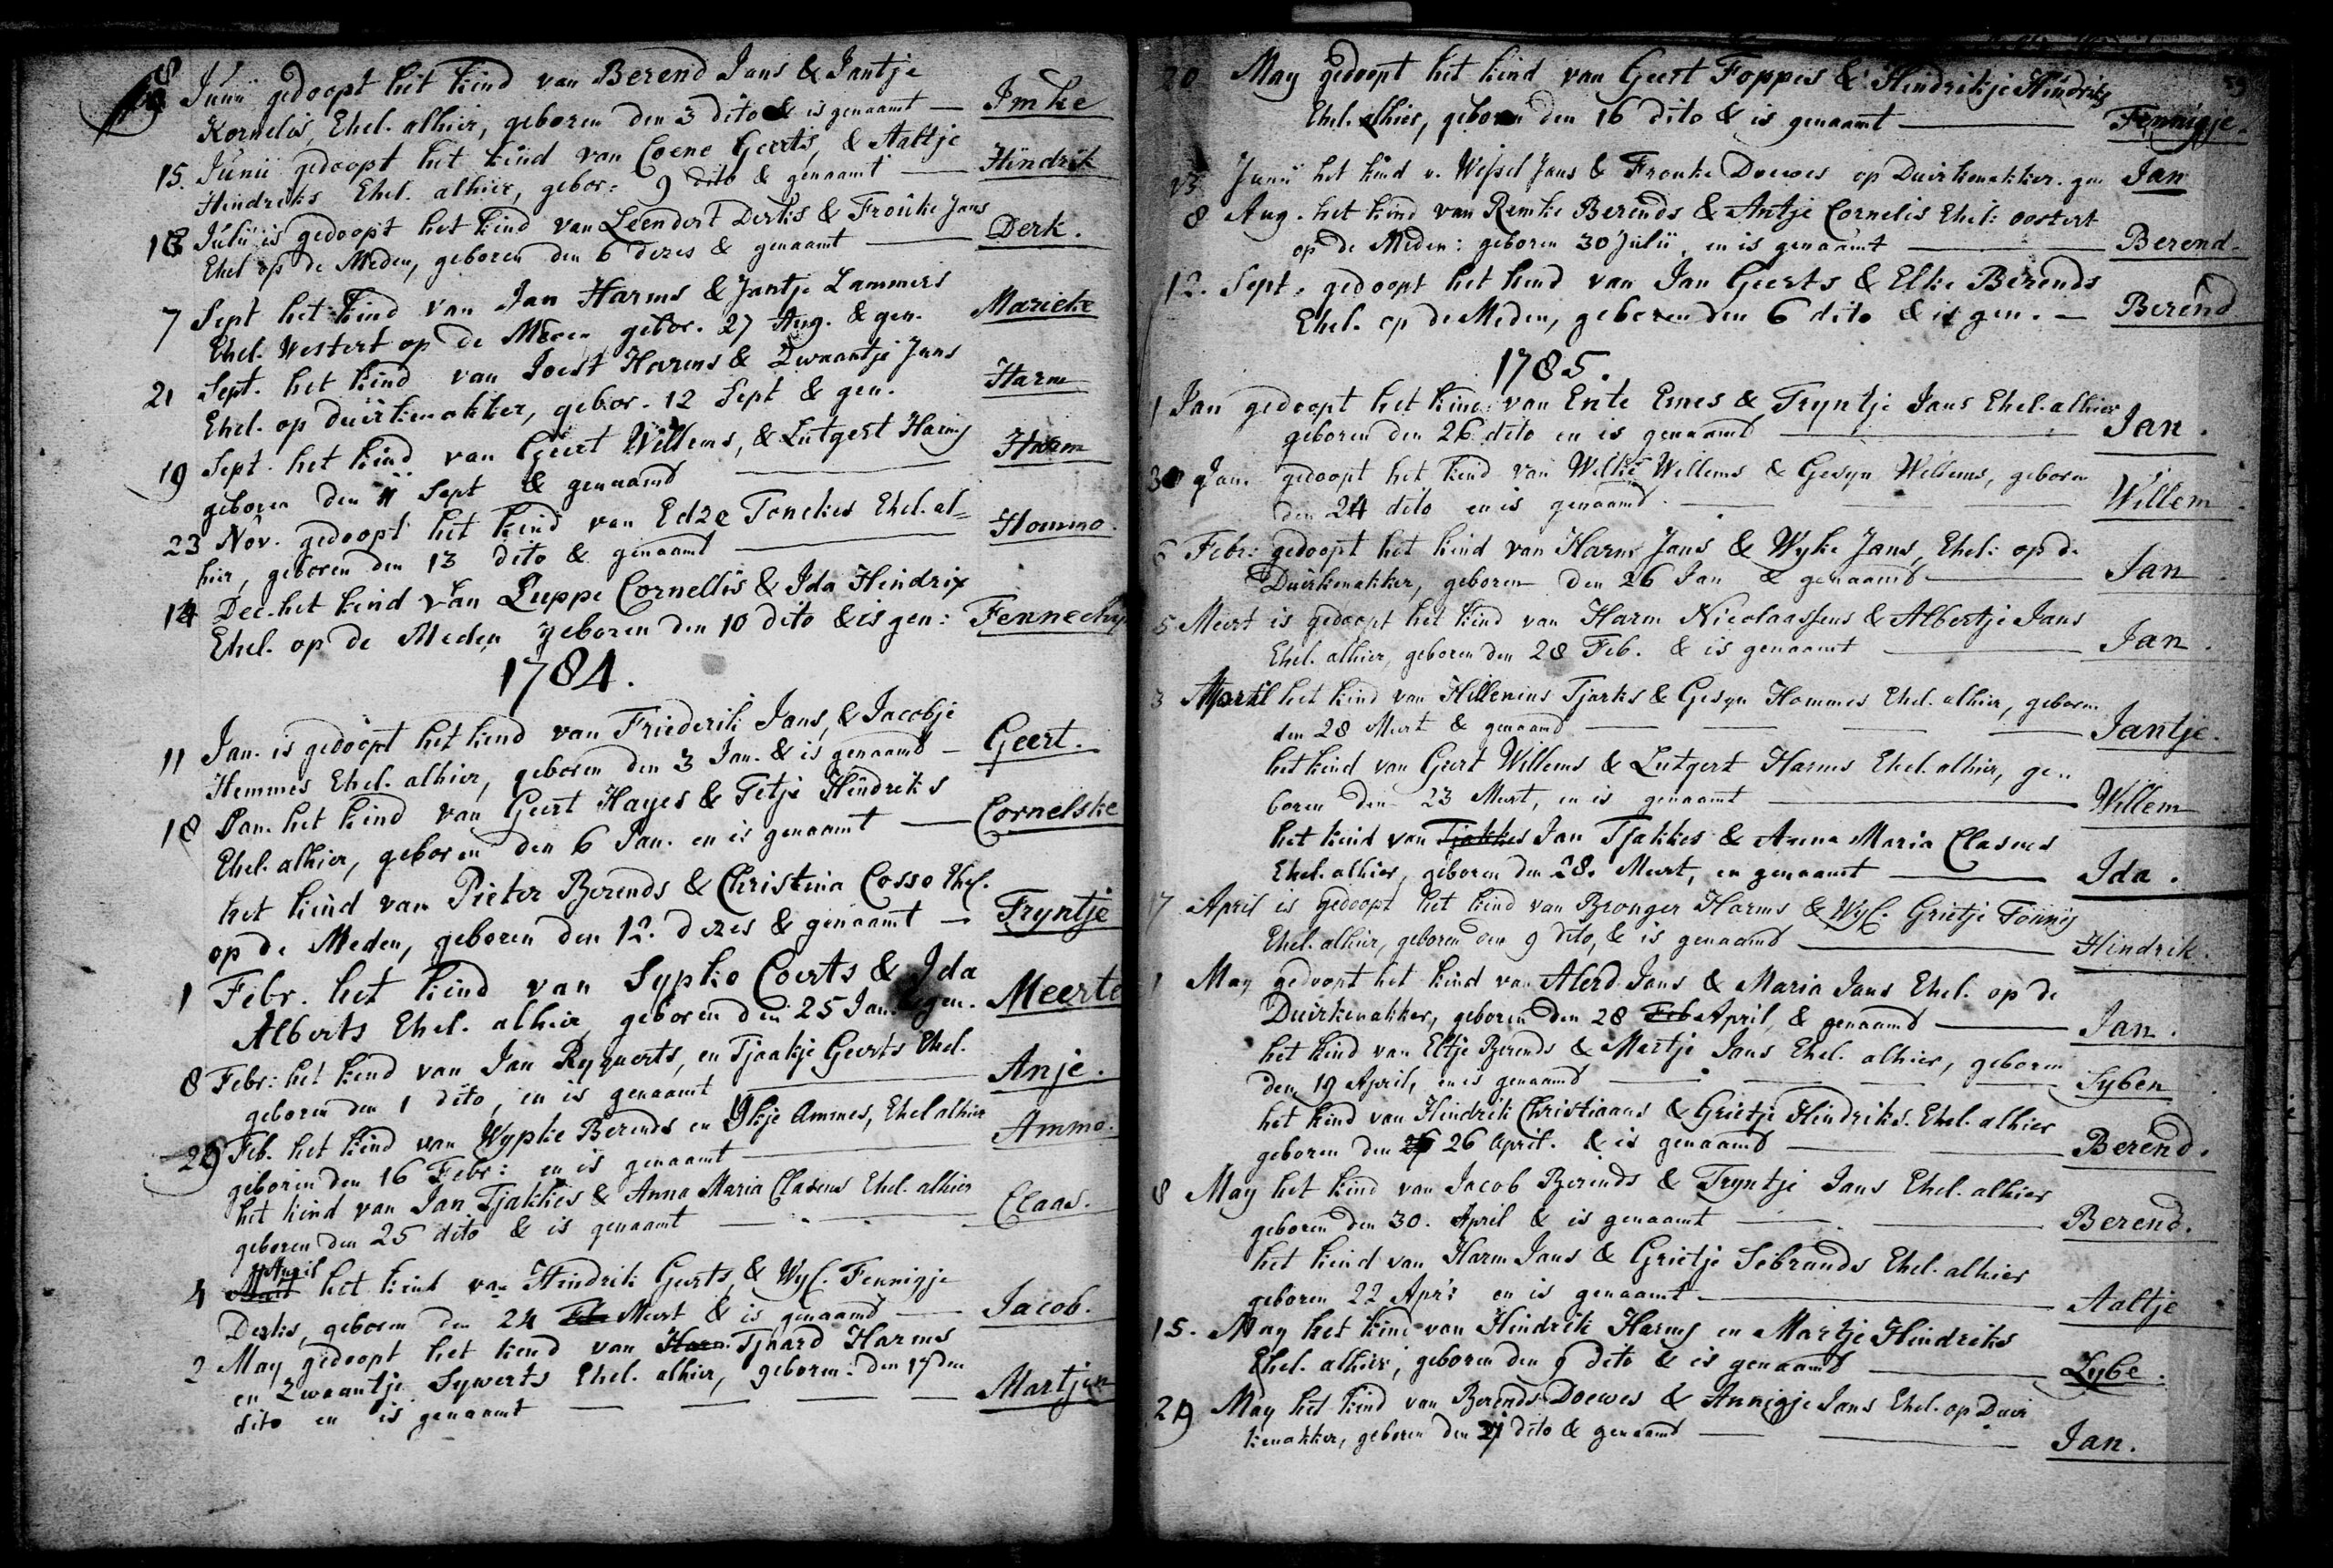 8 Junii gedoopt het kind van Berend Jans & Jantje
Kornelis, Ehel. alhier, geboren den 3 dito & is genaamt — Imke
15. Junii gedoopt het kind van Coene Geerts, & Aaltje
Hindreks Ehel. alhier, gebor: 9 dito & genaamt — Hindrik
13 Julii is gedoopt het kind van Leendert Derks & Frouke Jans
Ehel op de Meden, geboren den 6 dezes & genaamt — Derk.
7 Sept het kind van Jan Harms & Jantje Lammers
Ehel. Westert op de Meden gebor. 27 Aug. & gen. Marieke
21 Sept. het kind van Joest Harms & Zwaantje Jans
Ehel. op duirkenakker, gebor. 12 Sept & gen. Harm
19 Sept. het kind van Geert Willems, & Lutgert Harms
geboren den 11 Sept & genaamd — Harm
23 Nov. gedoopt het kind van Edze Tonckes Ehel. al=
hier, geboren den 13 dito & genaamt — Hommo.
14 Dec. het kind van Luppe Cornellis & Ida Hindrix
Ehel. op de Meden geboren den 10 dito & is gen: Fennechje
1784.
11 Jan. is gedoopt het kind van Friederik Jans, & Jacobje
Hemmes Ehel. alhier, geboren den 3 Jan. & is genaamd — Geert.
18 Jan. het kind van Geert Hayes & Tetje Hindreks
Ehel. alhier, geboren den 6 Jan. en is genaamt — Cornelske
het kind van Pieter Berends & Christina Cosso Ehel.
op de Meden, geboren den 12. dezes & genaamt — Tryntje
1 Febr. het kind van Sypko Coerts & Ida
Alberts Ehel. alhier, geboren den 25 Jan. & gen. Meerte
8 Febr: het kind van Jan Rynerts, en Tjaakje Geerts Ehel.
geboren den 1 dito, en is genaamt — Anje.
29 Feb. het kind van Wypke Berends en Ykje Ammes, Ehel alhier
geboren den 16 Febr: en is genaamt — Ammo.
het kind van Jan Tjakkes & Anna Maria Clasens Ehel. alhier
geboren den 25 dito & is genaamt — Claas.
4 April het kind van Hindrik Geerts, & Wyl. Fennigje
Derks, geboren den 24 Meert & is genaamd — Jacob.
2 May gedoopt het kind van Harm Tjaard Harms
en Zwaantje Sywerts Ehel. alhier, geboren: den 17 den
dito en is genaamt — Martjen
59
20 May gedoopt het kind van Geert Foppes & Hindrikje Hindriks
Ehel. alhier, geboren den 16 dito & is genaamt — Fennigje.
13 Junii het kind v. Wessel Jans & Frouke Doewes op Duirkenakker. gen Jan
8 Aug. het kind van Remke Berends & Antje Cornelis Ehel: oostert
op de Meden: geboren 30 Julii, en is genaamt — Berend.
12. Sept. gedoopt het kind van Jan Geerts & Elke Berends
Ehel. op de Meden, geboren den 6 dito & is gen. — Berend
1785.
1 Jan gedoopt het kind van Ente Emes & Tryntje Jans Ehel. alhier
geboren den 26 dito en is genaamd — Jan.
30 Jan. gedoopt het kind van Welke Willems & Gesyn Willems, geboren
den 24 dito en is genaamd — Willem
6 Febr: gedoopt het kind van Harm Jans & Wyke Jans, Ehel: op de
Duirkenakker, geboren den 26 Jan & genaamd — Jan
5 Meert is gedoopt het kind van Harm Nicolaassens & Albertje Jans
Ehel. alhier, geboren den 28 Feb. & is genaamt — Jan.
3 April het kind van Hillenius Tjarks & Gesyn Hommes Ehel. alhier, geboren
den 28 Meert & genaamd — Jantje.
het kind van Geert Willems & Lutgert Harms Ehel. alhier, ge=
boren den 23 Mert, en is genaamt — Willem
het kind van Tjakkes Jan Tjakkes & Anna Maria Clasens
Ehel. alhier, geboren den 28. Meert, en genaamt — Ida.
17 April is gedoopt het kind van Bronger Harms & Wyl. Grietje Tönnis
Ehel. alhier, geboren den 9 dito, & is genaamd — Hindrik.
1 May gedoopt het kind van Alerd Jans & Maria Jans Ehel. op de
Duirkenakker, geboren den 28 Feb April, & genaamd — Jan.
het kind van Eltje Berends & Martje Jans Ehel. alhier, geboren
den 19 April, en is genaamd — Syben
het kind van Hindrik Christiaans & Grietje Hindriks. Ehel. alhier
geboren den 26 April. & is genaamd — Berend.
8 May het kind van Jacob Berends & Tryntje Jans Ehel. alhier
geboren den 30. April & is genaamt — Berend.
het kind van Harm Jans & Grietje Sebrands Ehel. alhier
geboren 22 Apr: en is genaamt — Aaltje
15. May het kind van Hindrik Harms en Martje Hindriks
Ehel. alhier, geboren den 9 dito & is genaamd — Lybe.
29 May het kind van Berends Doewes & Annigje Jans Ehel. op Duir
kenakker, geboren den dito & genaamd — Jan.